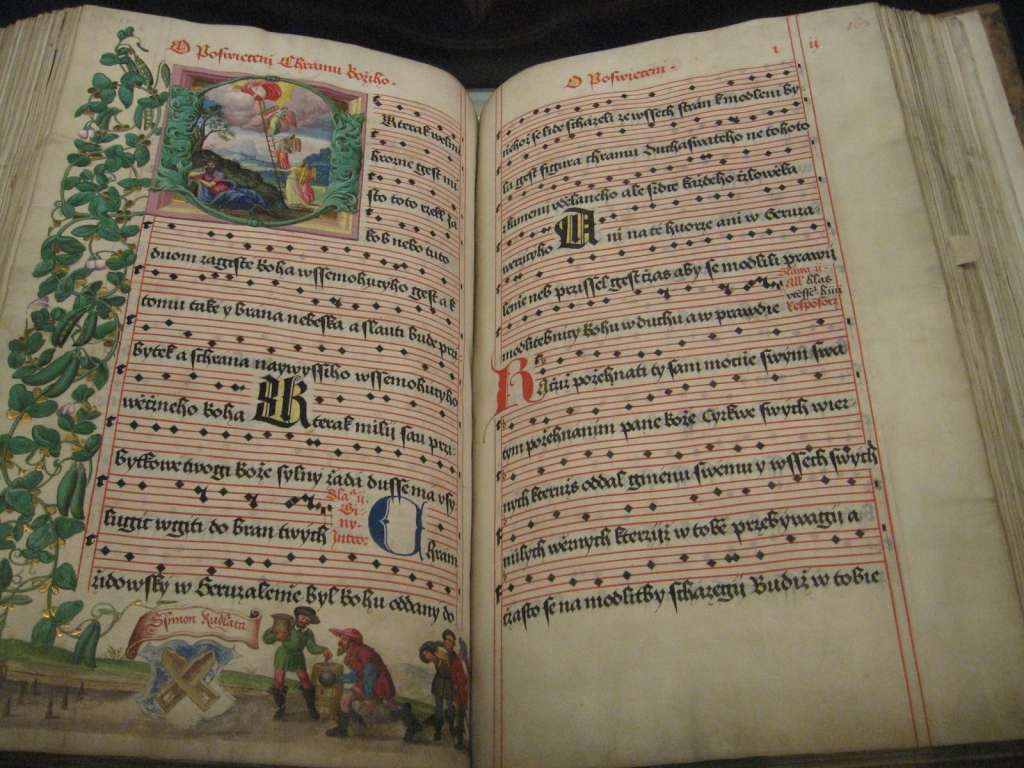 O Poswieceni Chramu Božiho
Kterak welmi
hrozne gest mi
sto toto rzekl Ja
kob nebo tuto
duom zagiste Boha wssemohutyho gest a k
tomu take y brana nebeska a slauti bude pří
bytek a schrana naywyssiho wssemohutyho
wěčneho Boha Kterak milij sau przi
bytkowe twogi Bože sylny žada dusse ma vsy
lugic wgiti do bran twych
Chram
židowsky w Geruzalenie byl Bohu oddany do
Symon Kudlata
O Poswieceni
i ij
niehož se lide schazeli ze wssech stran k modleni by
la gest figura chramu Duchasiwateho ne tohoto
kamenij vdělaneho ale srdce každeho człowěka
wěrzicyho Ani na té huorze ani w Geruza
lenie neb přissel gest čas aby se modlili prawij
modlitebnity Bohu w duchu a w prawdie
Racžiž požehnati ty sam mocnie swym swa
tym požehnanim pane Bože Cyrkwe swych wier
nych kteruž oddal gmenu swemu y wssech swých
milych wěrnych kterzijž w tobě przebywagij a
cžasto se na modlitby schazegij Budiž w tobie